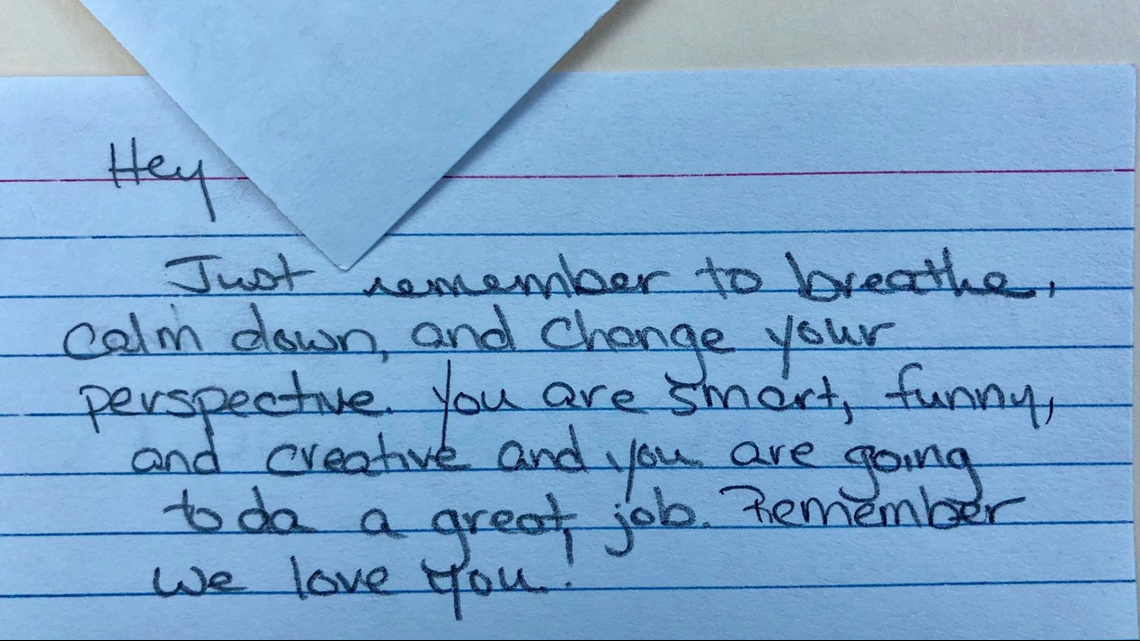 Hey
Just remember to breathe,
calm down, and change your
perspective. You are smart, funny,
and creative and you are going
to do a great job. Remember
we love you!